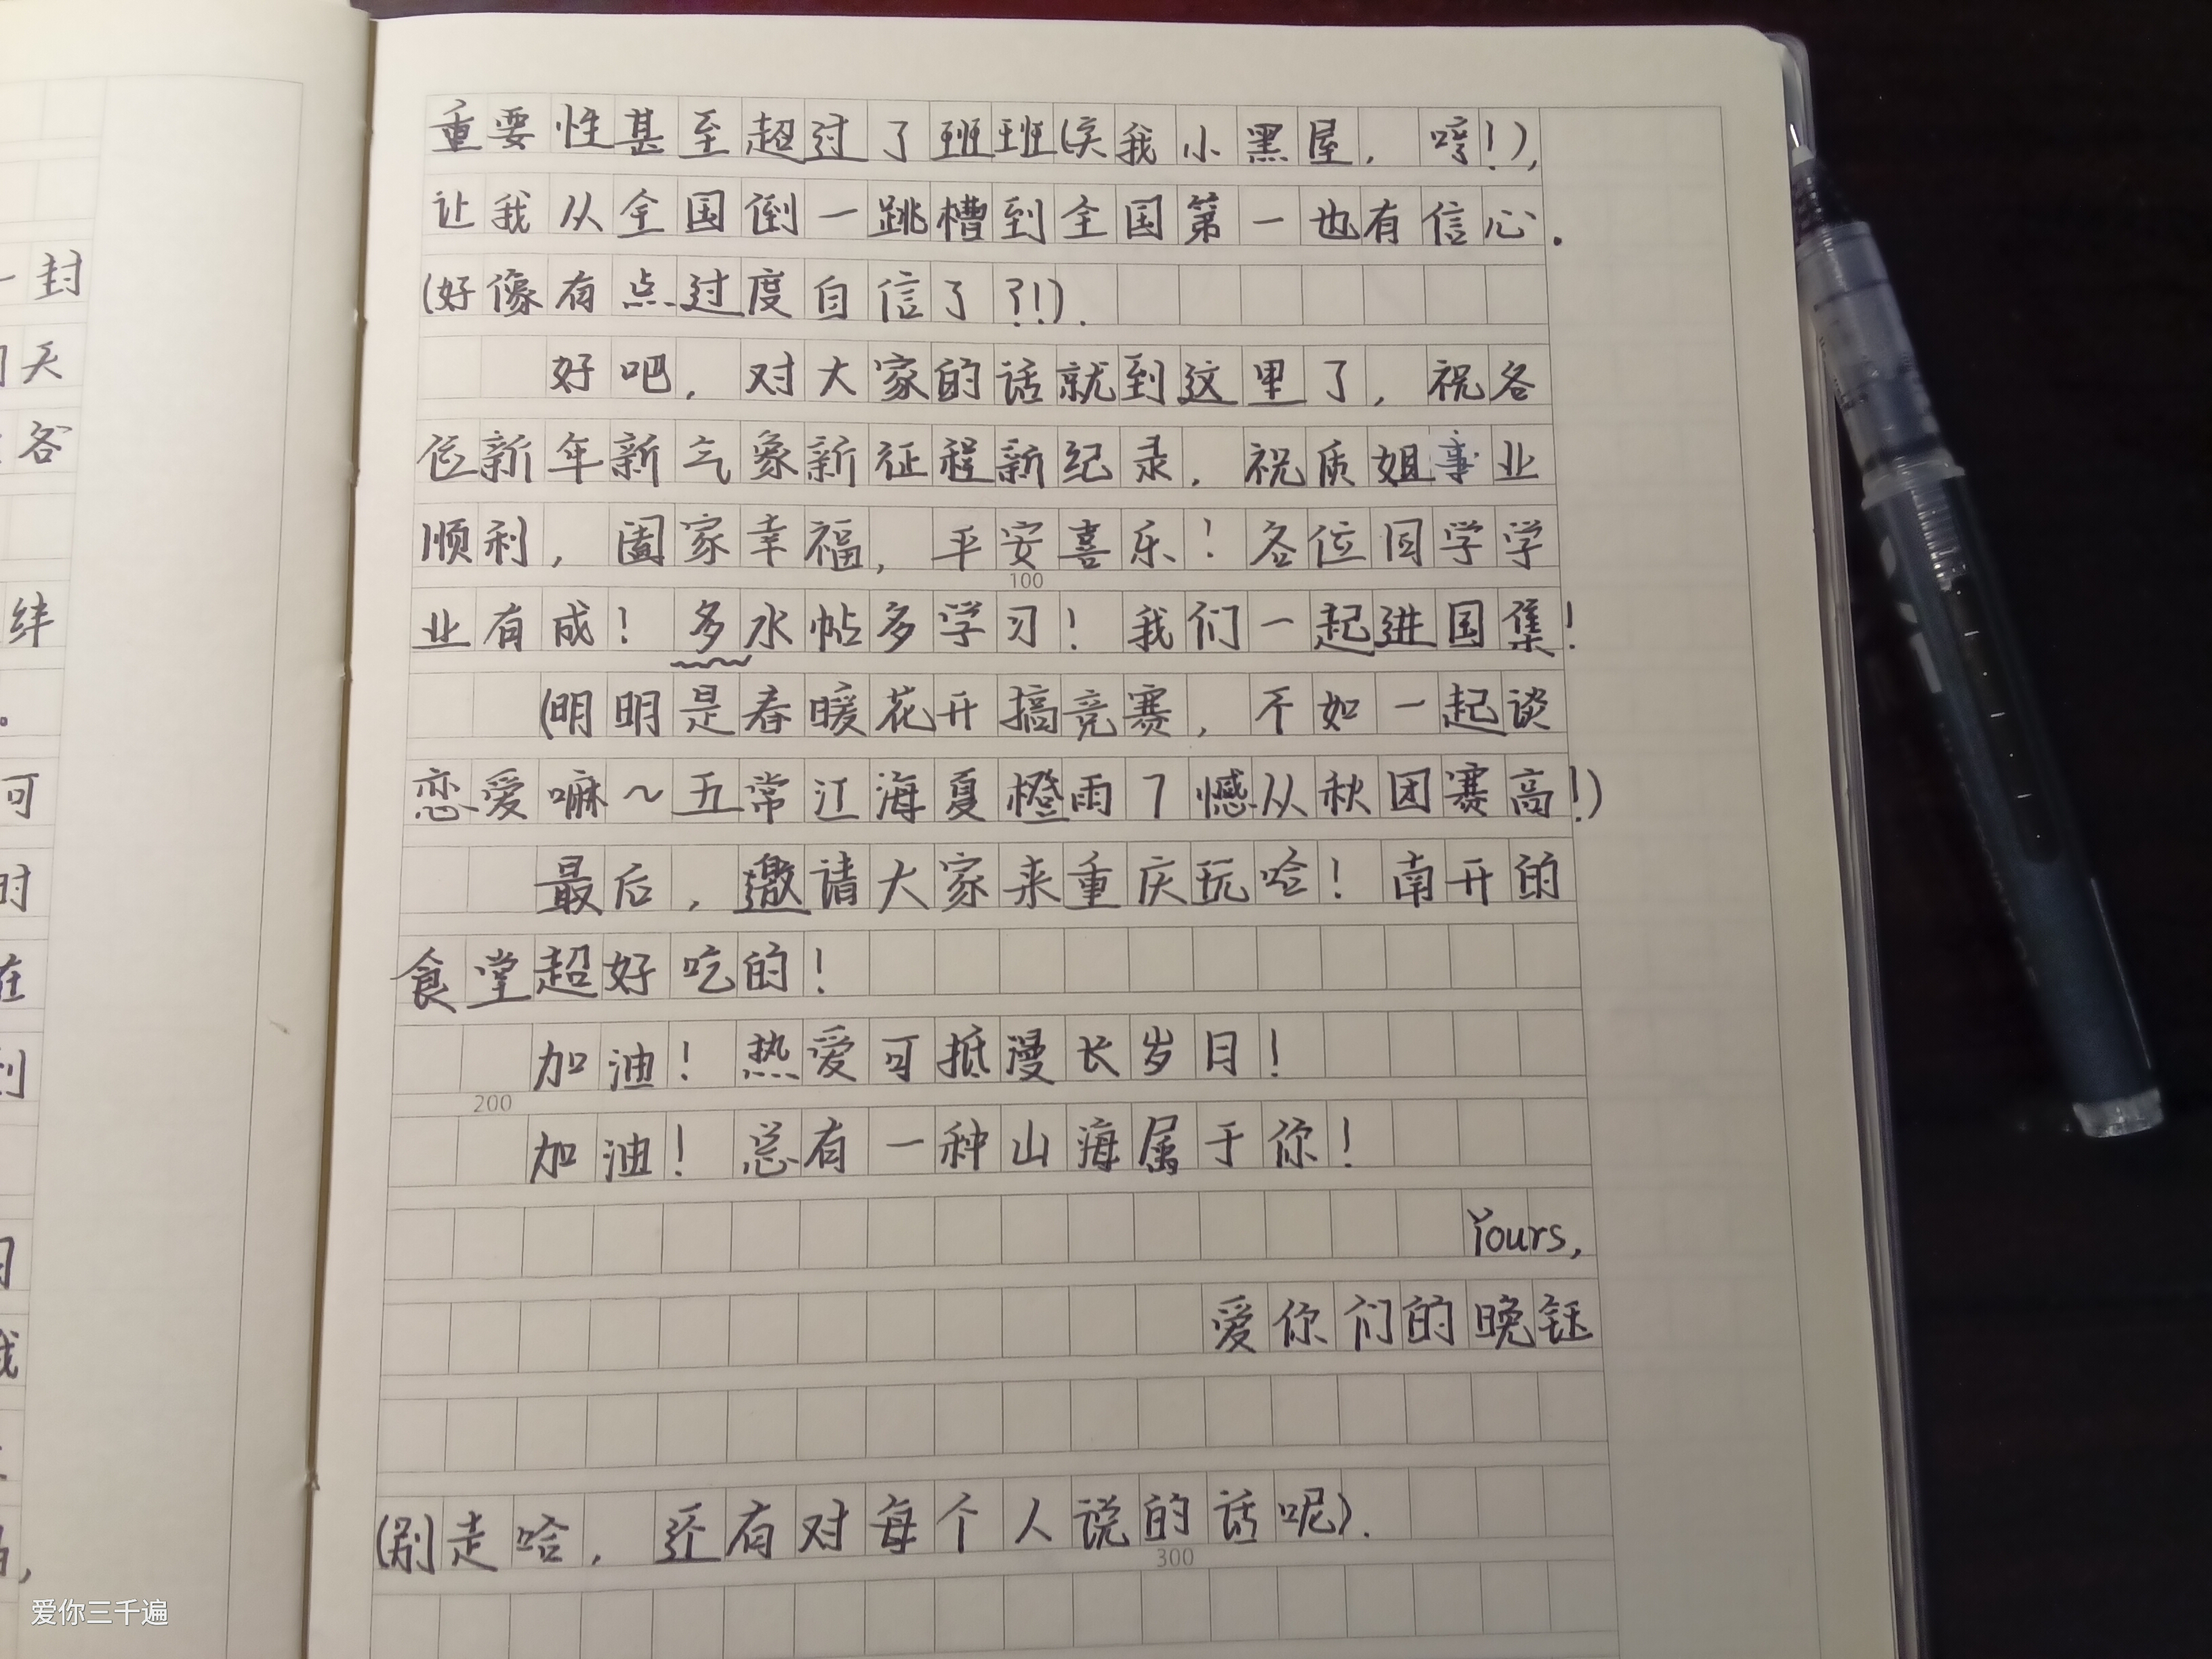 封
天
各
绊
可
时
在
到
重要性甚至超过了班班(关我小黑屋，哼!),
让我从全国倒一跳槽到全国第一也有信心.
(好像有点过度自信了?!).
好吧，对大家的话就到这里了，祝各
位新年新气象新征程新纪录，祝质姐事业
顺利，阖家幸福，平安喜乐！各位同学学
业有成！多水帖多学习！我们一起进国集！
100
(明明是春暖花开搞竞赛，不如一起谈
恋爱嘛～五常江海夏橙雨了憾从秋团赛高!)
最后，邀请大家来重庆玩哈！南开的
食堂超好吃的！
加油！热爱可抵漫长岁月！
200
加油！总有一种山海属于你！
Yours,
爱你们的晚钰
(别走哈，还有对每个人说的话呢).
300
爱你三千遍